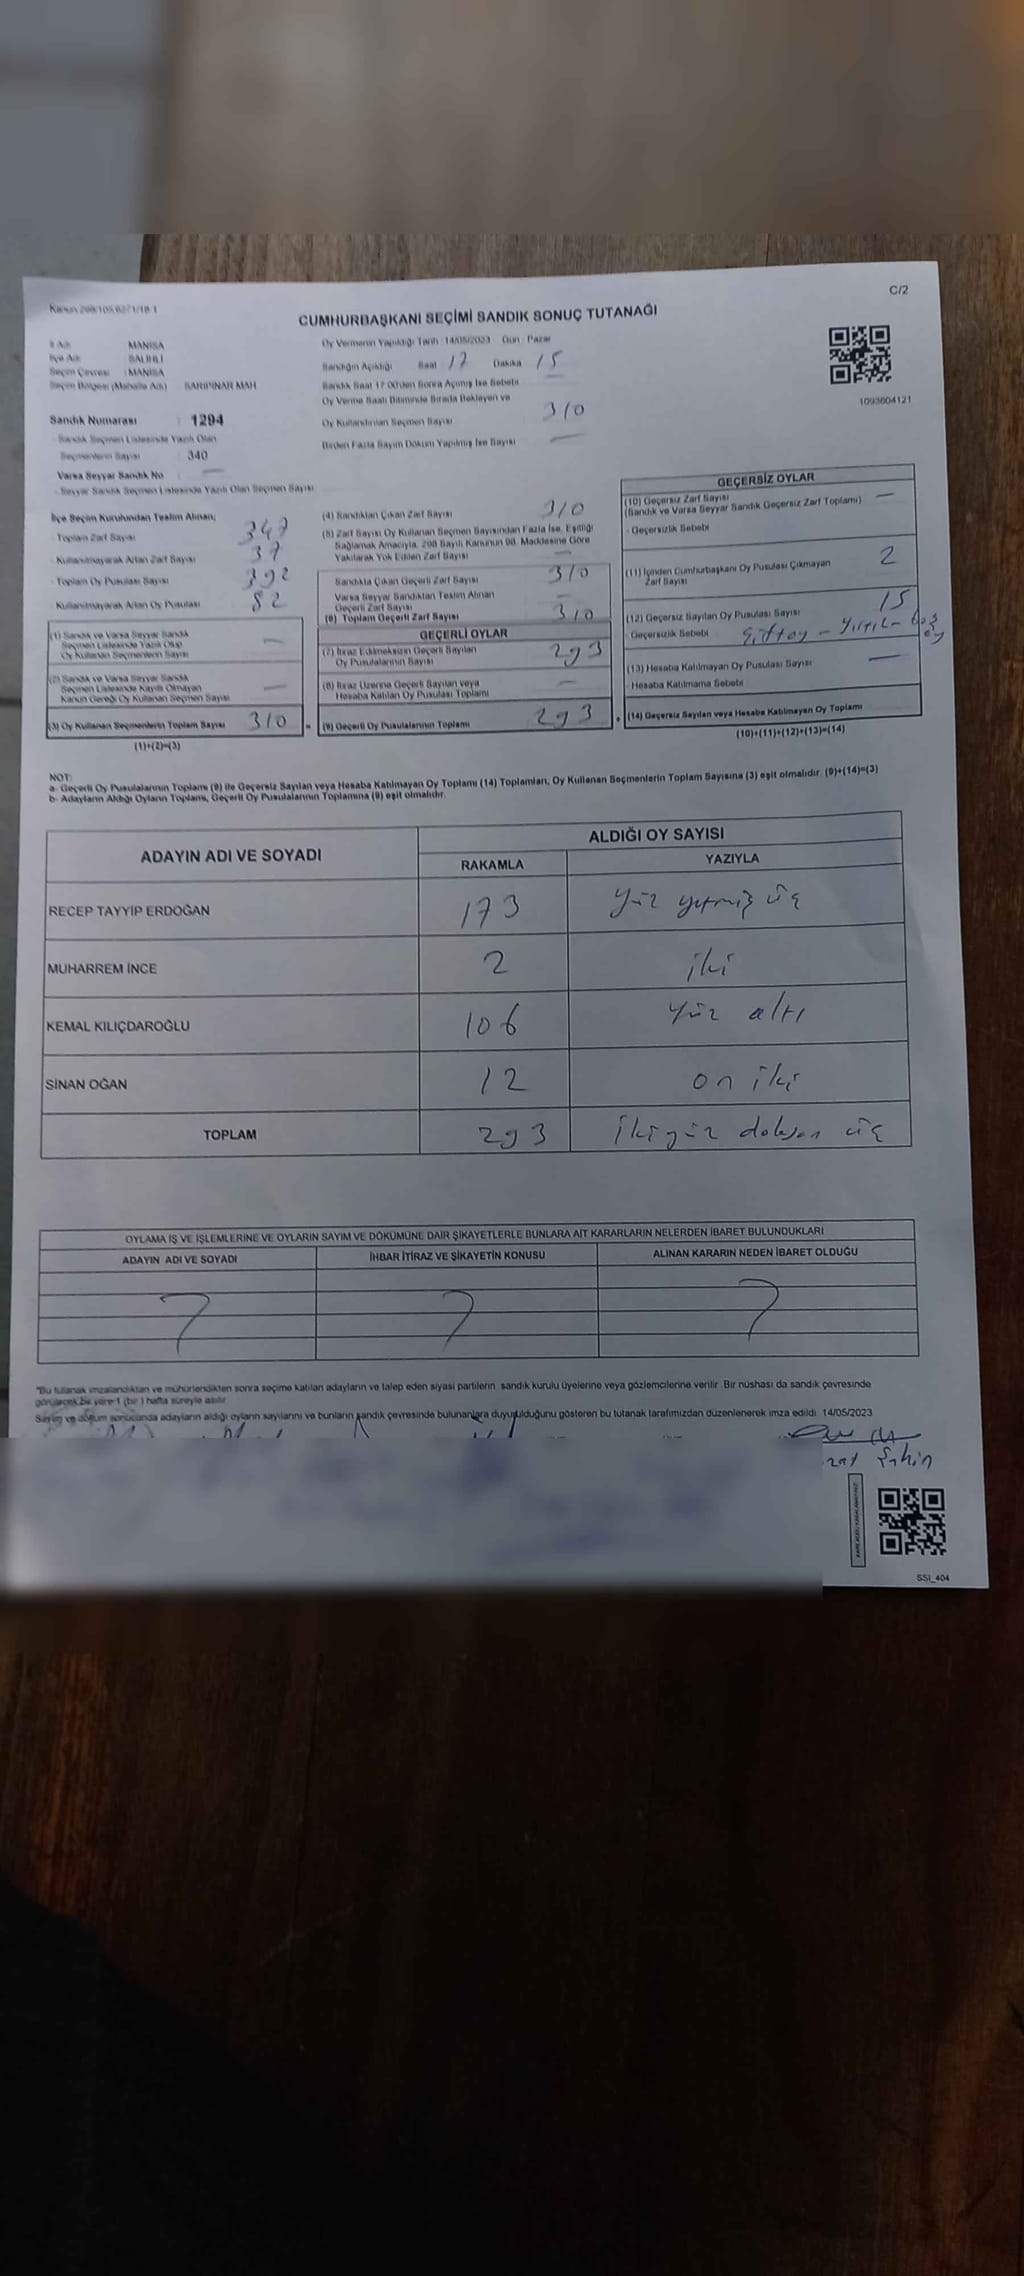 C/2
Kanun 298/105,6271/18.1
CUMHURBAŞKANI SEÇİMİ SANDIK SONUÇ TUTANAĞI
İl Adı : MANİSA
İlçe Adı : SALİHLİ
Seçim Çevresi : MANİSA
Seçim Bölgesi (Mahalle Adı) : SARIPINAR MAH
Sandık Numarası : 1294
- Sandık Seçmen Listesinde Yazılı Olan
Seçmenlerin Sayısı : 340
Varsa Seyyar Sandık No : —
- Seyyar Sandık Seçmen Listesinde Yazılı Olan Seçmen Sayısı
Oy Vermenin Yapıldığı Tarih : 14/05/2023 Gün : Pazar
Sandığın Açıldığı Saat 17 Dakika 15
Sandık Saat 17:00'den Sonra Açılmış İse Sebebi —
Oy Verme Saati Bitiminde Sırada Bekleyen ve
Oy Kullandırılan Seçmen Sayısı 310
Birden Fazla Sayım Döküm Yapılmış İse Sayısı —
1093604121
İlçe Seçim Kurulundan Teslim Alınan;
- Toplam Zarf Sayısı 347
- Kullanılmayarak Artan Zarf Sayısı 37
- Toplam Oy Pusulası Sayısı 392
- Kullanılmayarak Artan Oy Pusulası 82
(1) Sandık ve Varsa Seyyar Sandık
Seçmen Listesinde Yazılı Olup
Oy Kullanan Seçmenlerin Sayısı —
(2) Sandık ve Varsa Seyyar Sandık
Seçmen Listesinde Kayıtlı Olmayan
Kanun Gereği Oy Kullanan Seçmen Sayısı —
(3) Oy Kullanan Seçmenlerin Toplam Sayısı 310 =
(1)+(2)=(3)
(4) Sandıktan Çıkan Zarf Sayısı 310
(5) Zarf Sayısı Oy Kullanan Seçmen Sayısından Fazla İse, Eşitliği
Sağlamak Amacıyla, 298 Sayılı Kanunun 98. Maddesine Göre
Yakılarak Yok Edilen Zarf Sayısı —
Sandıkta Çıkan Geçerli Zarf Sayısı 310
Varsa Seyyar Sandıktan Teslim Alınan
Geçerli Zarf Sayısı —
(6) Toplam Geçerli Zarf Sayısı 310
GEÇERLİ OYLAR
(7) İtiraz Edilmeksizin Geçerli Sayılan
Oy Pusulalarının Sayısı 293
(8) İtiraz Üzerine Geçerli Sayılan veya
Hesaba Katılan Oy Pusulası Toplamı —
(9) Geçerli Oy Pusulalarının Toplamı 293 +
GEÇERSİZ OYLAR
(10) Geçersiz Zarf Sayısı —
(Sandık ve Varsa Seyyar Sandık Geçersiz Zarf Toplamı)
- Geçersizlik Sebebi
(11) İçinden Cumhurbaşkanı Oy Pusulası Çıkmayan
Zarf Sayısı 2
(12) Geçersiz Sayılan Oy Pusulası Sayısı 15
- Geçersizlik Sebebi
(13) Hesaba Katılmayan Oy Pusulası Sayısı —
- Hesaba Katılmama Sebebi
(14) Geçersiz Sayılan veya Hesaba Katılmayan Oy Toplamı
(10)+(11)+(12)+(13)=(14)
NOT:
a- Geçerli Oy Pusulalarının Toplamı (9) ile Geçersiz Sayılan veya Hesaba Katılmayan Oy Toplamı (14) Toplamları, Oy Kullanan Seçmenlerin Toplam Sayısına (3) eşit olmalıdır. (9)+(14)=(3)
b- Adayların Aldığı Oyların Toplamı, Geçerli Oy Pusulalarının Toplamına (9) eşit olmalıdır.
ADAYIN ADI VE SOYADI ALDIĞI OY SAYISI
RAKAMLA YAZIYLA
RECEP TAYYİP ERDOĞAN 173 yüz yetmiş üç
MUHARREM İNCE 2 iki
KEMAL KILIÇDAROĞLU 106 yüz altı
SİNAN OĞAN 12 on iki
TOPLAM 293 ikiyüz doksan üç
OYLAMA İŞ VE İŞLEMLERİNE VE OYLARIN SAYIM VE DÖKÜMÜNE DAİR ŞİKAYETLERLE BUNLARA AİT KARARLARIN NELERDEN İBARET BULUNDUKLARI
ADAYIN ADI VE SOYADI İHBAR İTİRAZ VE ŞİKAYETİN KONUSU ALINAN KARARIN NEDEN İBARET OLDUĞU
*Bu tutanak imzalandıktan ve mühürlendikten sonra seçime katılan adayların ve talep eden siyasi partilerin sandık kurulu üyelerine veya gözlemcilerine verilir. Bir nüshası da sandık çevresinde
görülecek bir yere 1 (bir ) hafta süreyle asılır.
Sayım ve döküm sonucunda adayların aldığı oyların sayılarını ve bunların sandık çevresinde bulunanlara duyurulduğunu gösteren bu tutanak tarafımızdan düzenlenerek imza edildi. 14/05/2023
Şahin
SSI_404